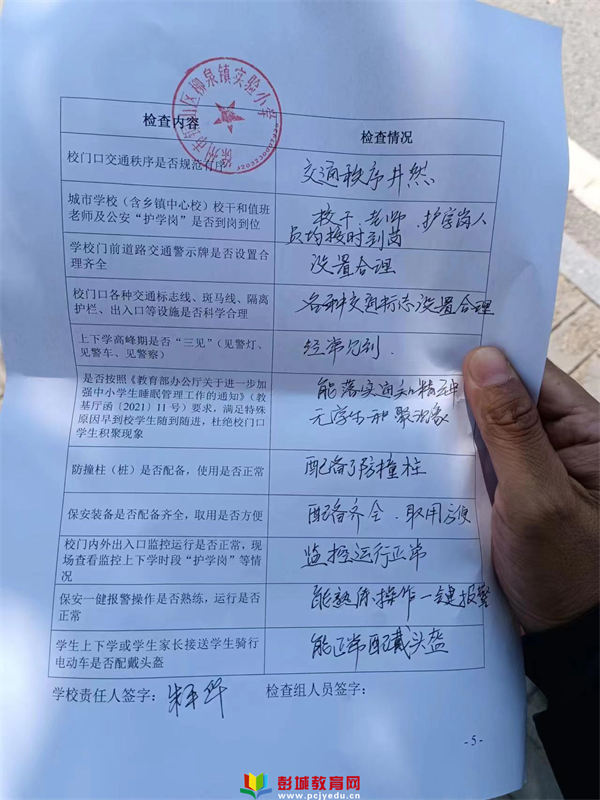 徐州市铜山区柳泉镇实验小学
检查内容
检查情况
校门口交通秩序是否规范有序
交通秩序井然
城市学校（含乡镇中心校）校干和值班
老师及公安“护学岗”是否到岗到位
校干、老师、护学岗人
员均按时到岗
学校门前道路交通警示牌是否设置合
理齐全
设置合理
校门口各种交通标志线、斑马线、隔离
护栏、出入口等设施是否科学合理
各种交通标志设置合理
上下学高峰期是否“三见”（见警灯、
见警车、见警察）
经常见到.
是否按照《教育部办公厅关于进一步加
强中小学生睡眠管理工作的通知》（教
基厅函〔2021〕11 号）要求，满足特殊
原因早到校学生随到随进，杜绝校门口
学生积聚现象
能落实通知精神
无学生积聚现象
防撞柱（桩）是否配备，使用是否正常
配备了防撞柱
保安装备是否配备齐全，取用是否方便
配备齐全、取用方便
校门内外出入口监控运行是否正常，现
场查看监控上下学时段“护学岗”等情
况
监控运行正常
保安一健报警操作是否熟练，运行是否
正常
能熟练操作一键报警
学生上下学或学生家长接送学生骑行
电动车是否配戴头盔
能正常配戴头盔
学校责任人签字：
检查组人员签字：
- 5 -
彭城教育网
www.pcjyedu.cn